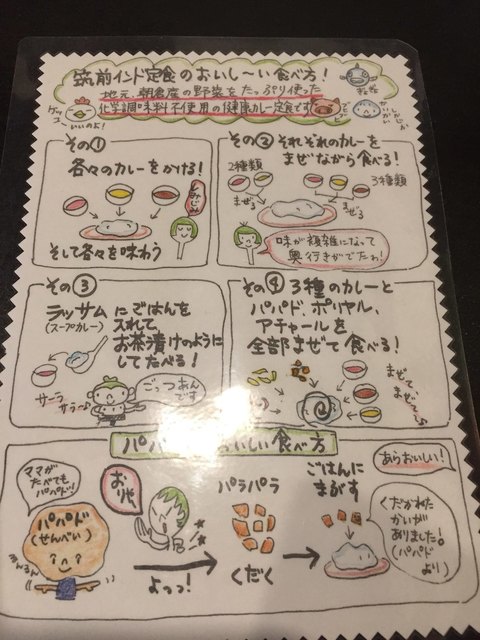 筑前インド定食のおいし〜い食べ方！
地元、朝倉産の野菜をたっぷり使った
化学調味料不使用の健康カレー定食です
いいのよ！
その①
各々のカレーをかける！
そして各々を味わう
その② それぞれのカレーを
まぜながら食べる！
2種類
3種類
まぜる
まぜる
味が複雑になって
奥行きがでたわ！
その③
ラッサムにごはんを
(スープカレー)
入れて
お茶漬けのように
してたべる！
サーラ
サラ〜♪
ごっつぁん
です
その④ 3種のカレーと
パパド、ポリヤル、
アチャールを
全部まぜて食べる！
まぜて
まぜて
おいしい食べ方
ママが
たべても
パパド！
パパド
(せんべい)
るんるん
おりゃ
よっ！
パラパラ
くだく
ごはんに
まぶす
あらおいしい！
くだかれた
かいが
ありました！
(パパド
より)